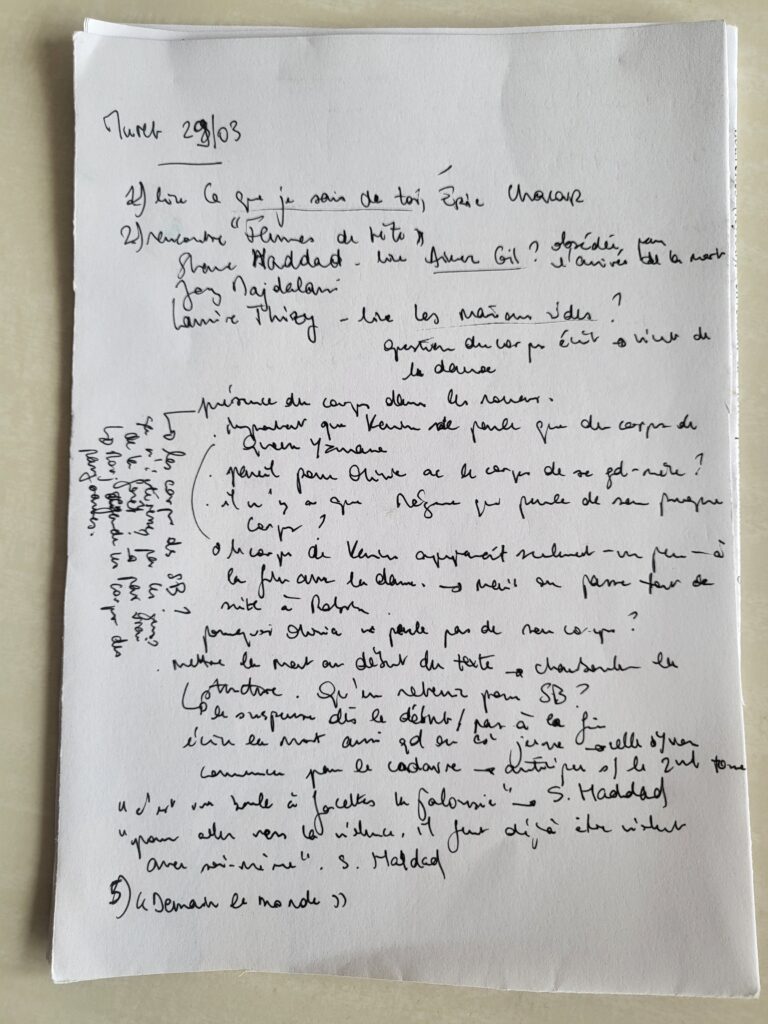 Muret 29/03
1) lire Ce que je sais de toi, Éric Chacour
2) rencontre "Femmes de tête"
Shane Haddad - lire Aimer Gil ? obsédée par
l'arrivée de la mort
Joy Majdalani
Laurine Thizy - lire Les maisons vides ?
question du corps écrit → vient de
la danse
présence du corps dans les romans.
. important que Kevin ne parle que du corps de
Queen
. pareil pour Olivia ac le corps de sa gd-mère ?
. il n'y a que Régine qui parle de son propre
corps ?
le corps de Kevin apparaît seulement - un peu - à
la fin avec la danse. → mais on passe tout de
suite à
pourquoi Olivia ne parle pas de son corps ?
. mettre la mort au début du texte → chambouler la
structure. Qu'en retenir pour SB ?
↳ le suspense dès le début / pas à la fin
écrire la mort aussi qd on est jeune → celle d'
commencer par le cadavre → anticiper s/ le 2nd tome
"c'est une boule à facettes la jalousie" → S. Haddad
"pour aller vers la violence, il faut déjà être violent
avec soi-même". S. Haddad
3) « Demain le monde »
↳ les corps des SB ?
par les
de la forêt ? →
↳ les corps des